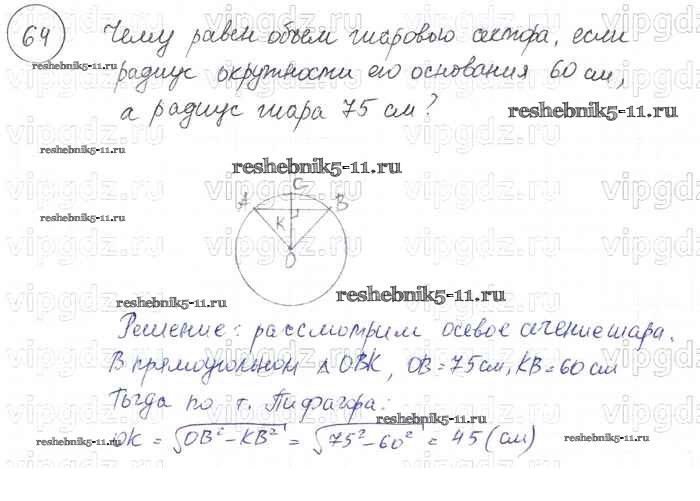 64
Чему равен объем шарового сектора, если
радиус окружности его основания 60 см,
а радиус шара 75 см?
reshebnik5-11.ru
reshebnik5-11.ru
reshebnik5-11.ru
reshebnik5-11.ru
reshebnik5-11.ru
C
A B
K
O
reshebnik5-11.ru
reshebnik5-11.ru
Решение: рассмотрим осевое сечение шара.
В прямоугольном △ OBK, OB = 75 см, KB = 60 см
Тогда по т. Пифагора:
reshebnik5-11.ru
OK = √OB² - KB² = √75² - 60² = 45 (см)
reshebnik5-11.ru
reshebnik5-11.ru
vipgdz.ru